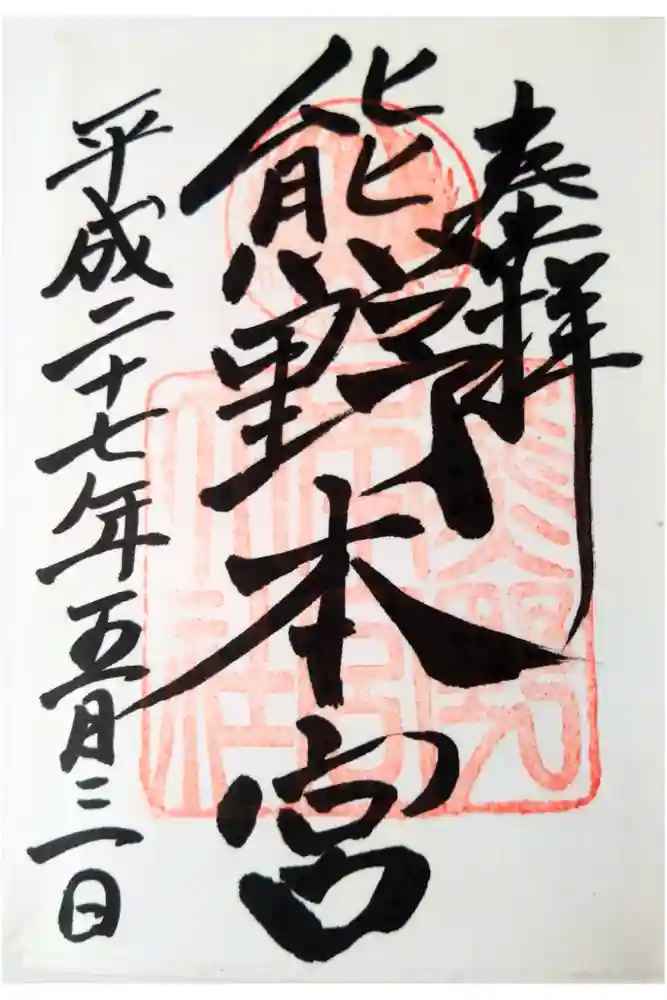 奉拝
熊野本宮
平成二十七年五月三日